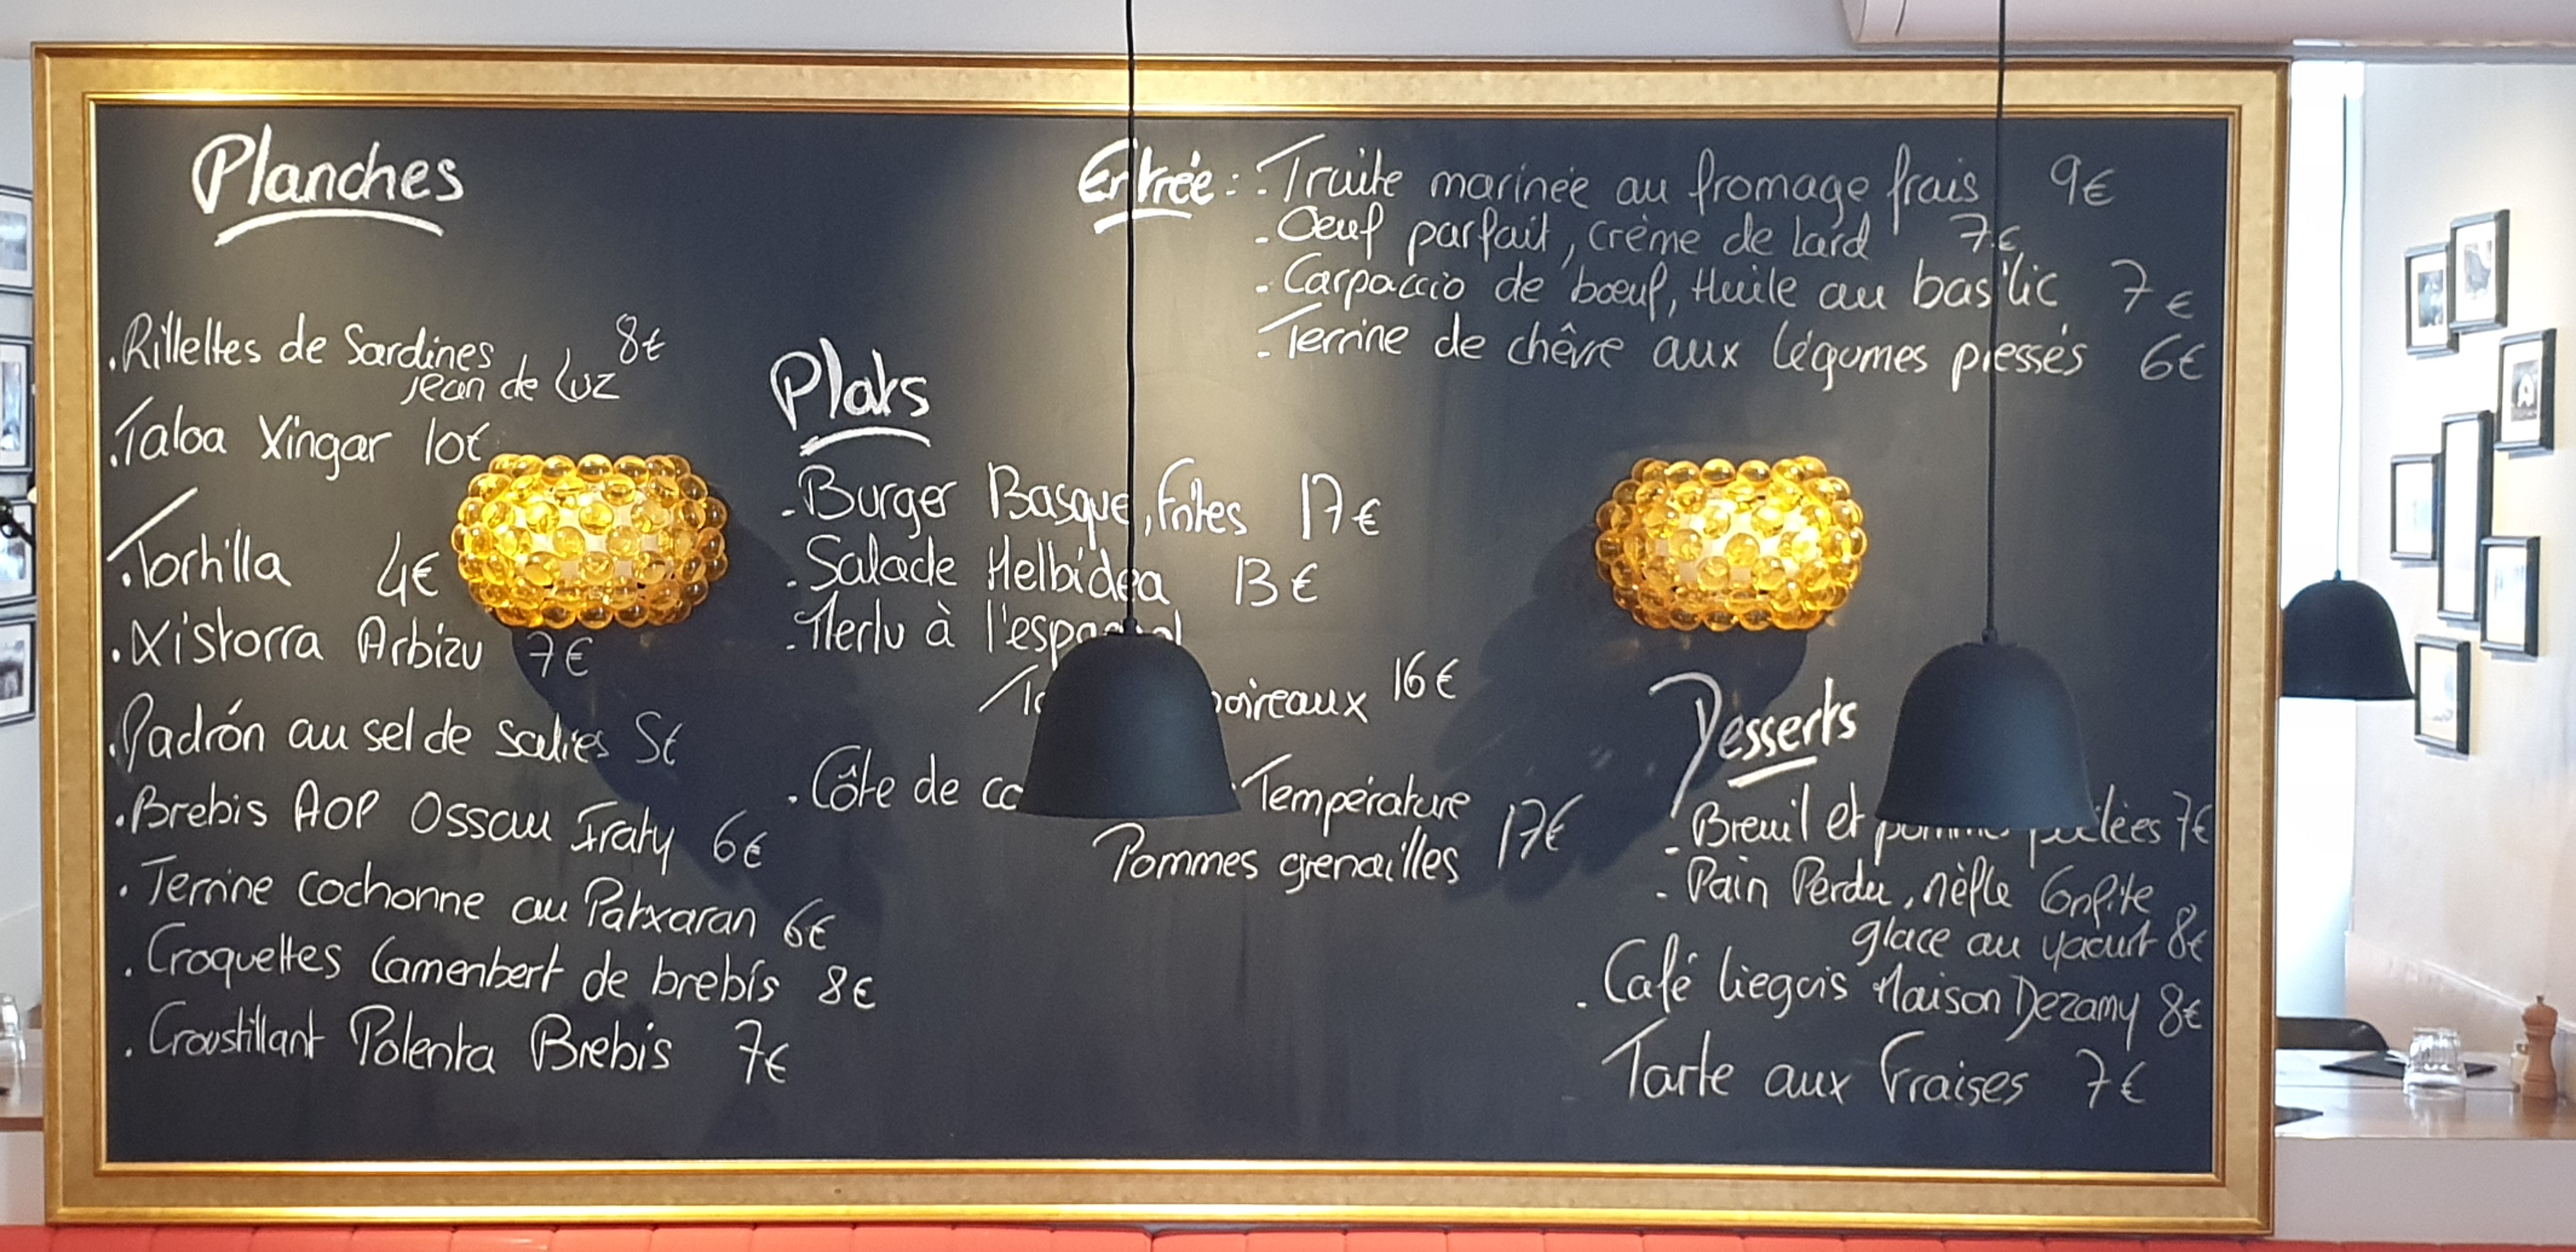 Planches
.Rillettes de Sardines 8€
Jean de Luz
.Taloa Xingar 10€
.Tortilla 4€
.Xistorra Arbizu 7€
.Padrón au sel de salies 5€
.Brebis AOP Ossau Iraty 6€
.Terrine cochonne au Patxaran 6€
.Croquettes Camenbert de brebis 8€
.Croustillant Polenta Brebis 7€
Plats
-Burger Basque, Frites 17€
-Salade Helbidea 13€
-Merlu à l'espagnol
16€
.Côte de Température
Pommes grenailles 17€
Entrée: -Truite marinée au fromage frais 9€
-Oeuf parfait, crème de lard 7€
-Carpaccio de bœuf, Huile au basilic 7€
-Terrine de chêvre aux légumes pressés 6€
Desserts
-Breuil et 7€
-Pain Perdu, nèfle Confite
glace au yaourt 8€
-Café liegois Maison Dezamy 8€
Tarte aux Fraises 7€